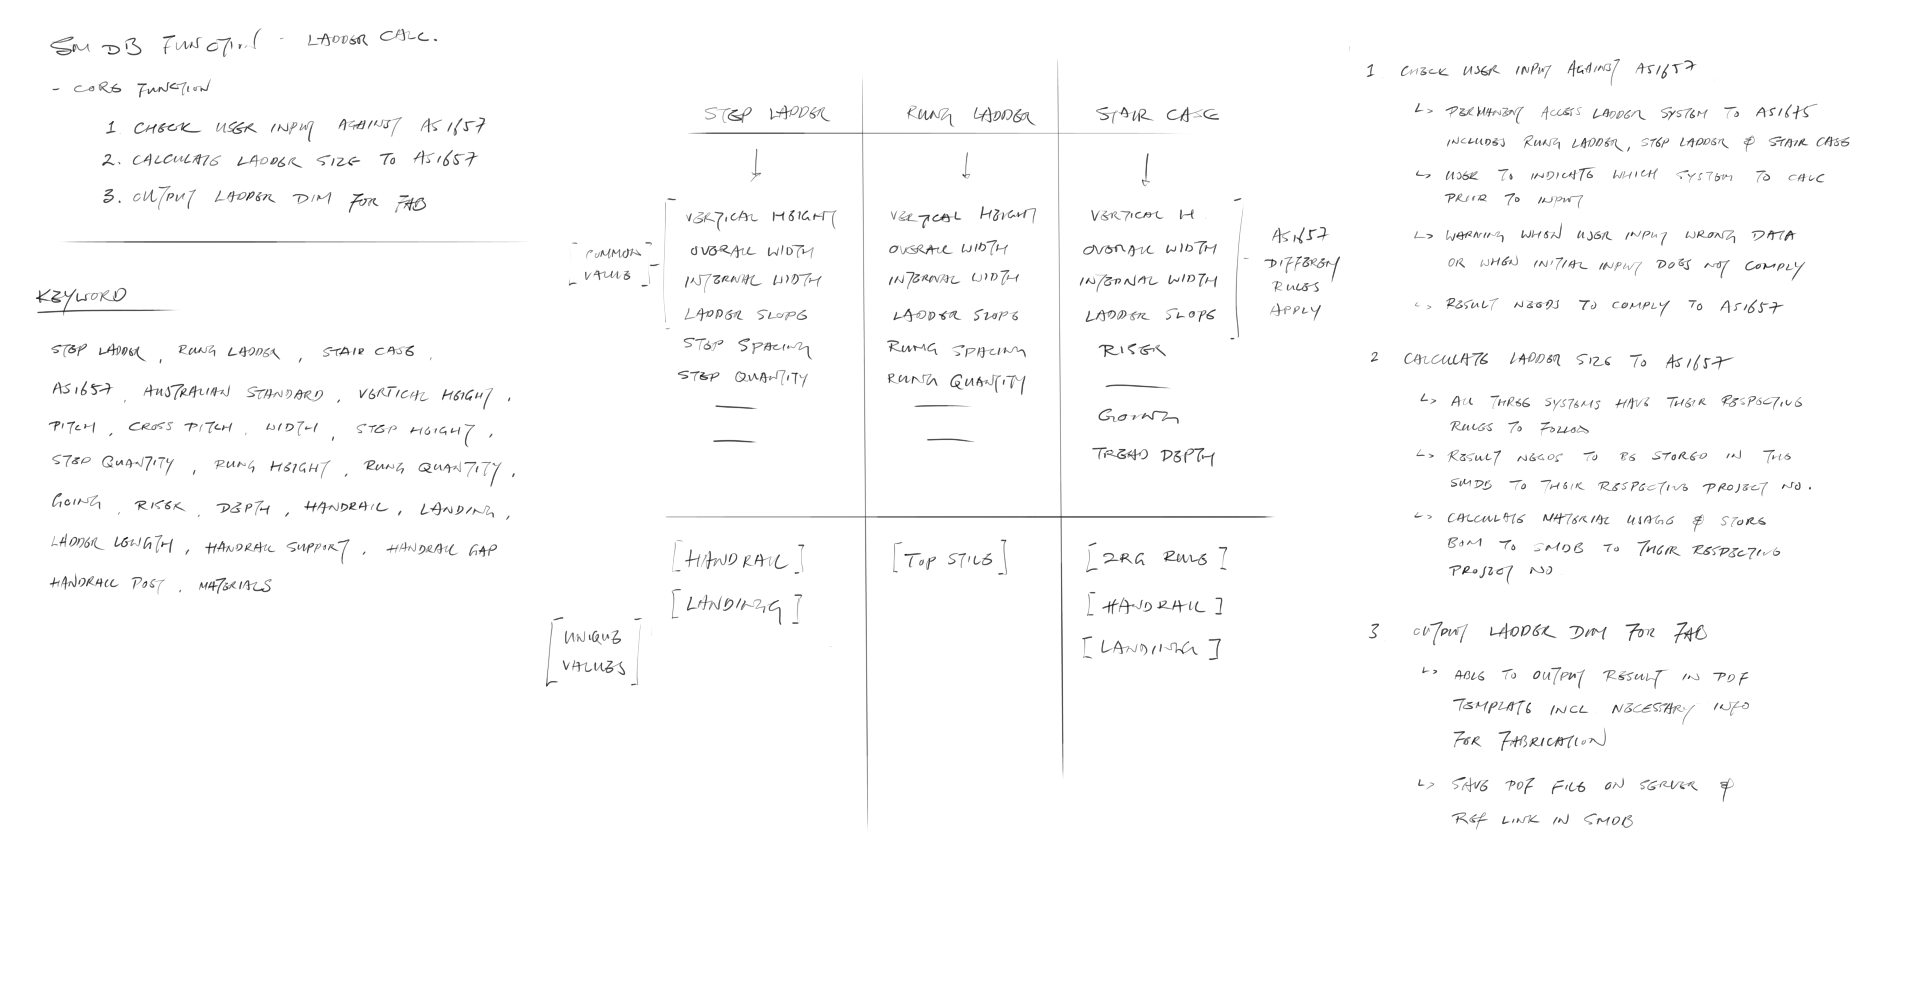 SM DB FUNCTION - LADDER CALC.
- CORE FUNCTION
1 CHECK USER INPUT AGAINST AS1657
2. CALCULATE LADDER SIZE TO AS1657
3. OUTPUT LADDER DIM FOR FAB
KEYWORD
STEP LADDER, RUNG LADDER, STAIR CASE,
AS1657, AUSTRALIAN STANDARD, VERTICAL HEIGHT,
PITCH, CROSS PITCH, WIDTH, STEP HEIGHT,
STEP QUANTITY, RUNG HEIGHT, RUNG QUANTITY,
GOING, RISER, DEPTH, HANDRAIL, LANDING,
LADDER LENGTH, HANDRAIL SUPPORT, HANDRAIL GAP
HANDRAIL POST, MATERIALS
STEP LADDER
RUNG LADDER
STAIR CASE
[COMMON
VALUE]
VERTICAL HEIGHT
OVERALL WIDTH
INTERNAL WIDTH
LADDER SLOPE
STEP SPACING
STEP QUANTITY
VERTICAL HEIGHT
OVERALL WIDTH
INTERNAL WIDTH
LADDER SLOPE
RUNG SPACING
RUNG QUANTITY
VERTICAL H.
OVERALL WIDTH
INTERNAL WIDTH
LADDER SLOPE
RISER
GOING
TREAD DEPTH
AS1657
DIFFERENT
RULES
APPLY
[UNIQUE
VALUES]
[HANDRAIL]
[LANDING]
[TOP STILE]
[2RG RULE]
[HANDRAIL]
[LANDING]
1 CHECK USER INPUT AGAINST AS1657
↳ PERMANENT ACCESS LADDER SYSTEM TO AS1675
INCLUDES RUNG LADDER, STEP LADDER & STAIR CASE
↳ USER TO INDICATE WHICH SYSTEM TO CALC
PRIOR TO INPUT
↳ WARNING WHEN USER INPUT WRONG DATA
OR WHEN INITIAL INPUT DOES NOT COMPLY
↳ RESULT NEEDS TO COMPLY TO AS1657
2 CALCULATE LADDER SIZE TO AS1657
↳ ALL THREE SYSTEMS HAVE THEIR RESPECTIVE
RULES TO FOLLOW
↳ RESULT NEEDS TO BE STORED IN THE
SMDB TO THEIR RESPECTIVE PROJECT NO.
↳ CALCULATE MATERIAL USAGE & STORE
BOM TO SMDB TO THEIR RESPECTIVE
PROJECT NO
3 OUTPUT LADDER DIM FOR FAB
↳ ABLE TO OUTPUT RESULT IN PDF
TEMPLATE INCL NECESTARY INFO
FOR FABRICATION
↳ SAVE PDF FILE ON SERVER &
REF LINK IN SMDB